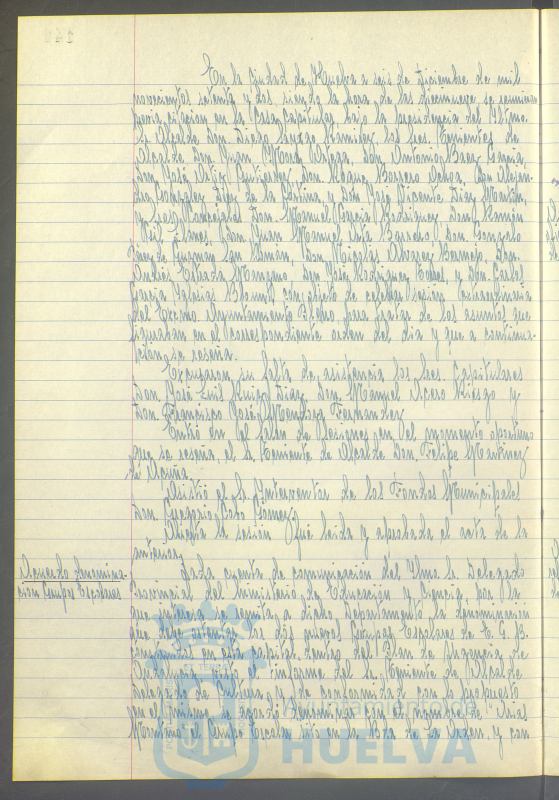 En la Ciudad de Huelva a seis de Diciembre de mil
novecientos setenta y dos, siendo la hora de las diecinueve se reunieron
previa citación en la Casa Capitular bajo la presidencia del Iltmo.
Sr. Alcalde Don Diego los Sres. Tenientes de
Alcalde Don Juan Mora Don Antonio Baez García,
Don José Gutierrez, Don Roque Barrero Don Alejan-
dro Gonzalez Diez de la Cortina, y Don José Vicente Diez Martín,
y Sres. Concejales Don Manuel García Rodríguez Don Ramón
Gil Don Juan Manuel Don Gonzalo
Perez de Guzmán San Román, Don Nicolás Alvarez Don
Andrés Estrada Manzano, Don José Rodríguez y Don Carlos
García con objeto de celebrar sesión Extraordinaria
del Excmo. Ayuntamiento Pleno, para tratar de los asuntos que
figuraban en el correspondiente orden del día y que a continua-
ción se reseña.
Excusaron su falta de asistencia los Sres. Capitulares
Don José Luis Ruiz Diaz Don Manuel y
Don Francisco José Martínez Fernandez
Entró en el Salón de Sesiones en el momento oportuno
que se reseña, el Sr. Teniente de Alcalde Don Felipe Martinez
de Acuña.
Asistió el Sr. Interventor de los Fondos Municipales
Don Gregorio Gomez.
Abierta la sesión fué leida y aprobada el acta de la
anterior.
Acuerdo denomina-
ción Grupos Escolares
Dada cuenta de comunicación del Ilmo. Sr. Delegado
Provincial del Ministerio de Educación y Ciencia, por la
que interesa se remita a dicho Departamento la denominación
que debe darse a los dos nuevos Grupos Escolares de E. G. B.
construidos en esta capital dentro del Plan de Urgencia de
Andalucía, visto el informe del Sr. Teniente de Alcalde
Delegado de Cultura, y de conformidad con lo propuesto
en el mismo se acordó denominar con el nombre de Arias
Montano el Grupo Escolar sito en la Bda. de La Orden, y con
Ayuntamiento de
HUELVA